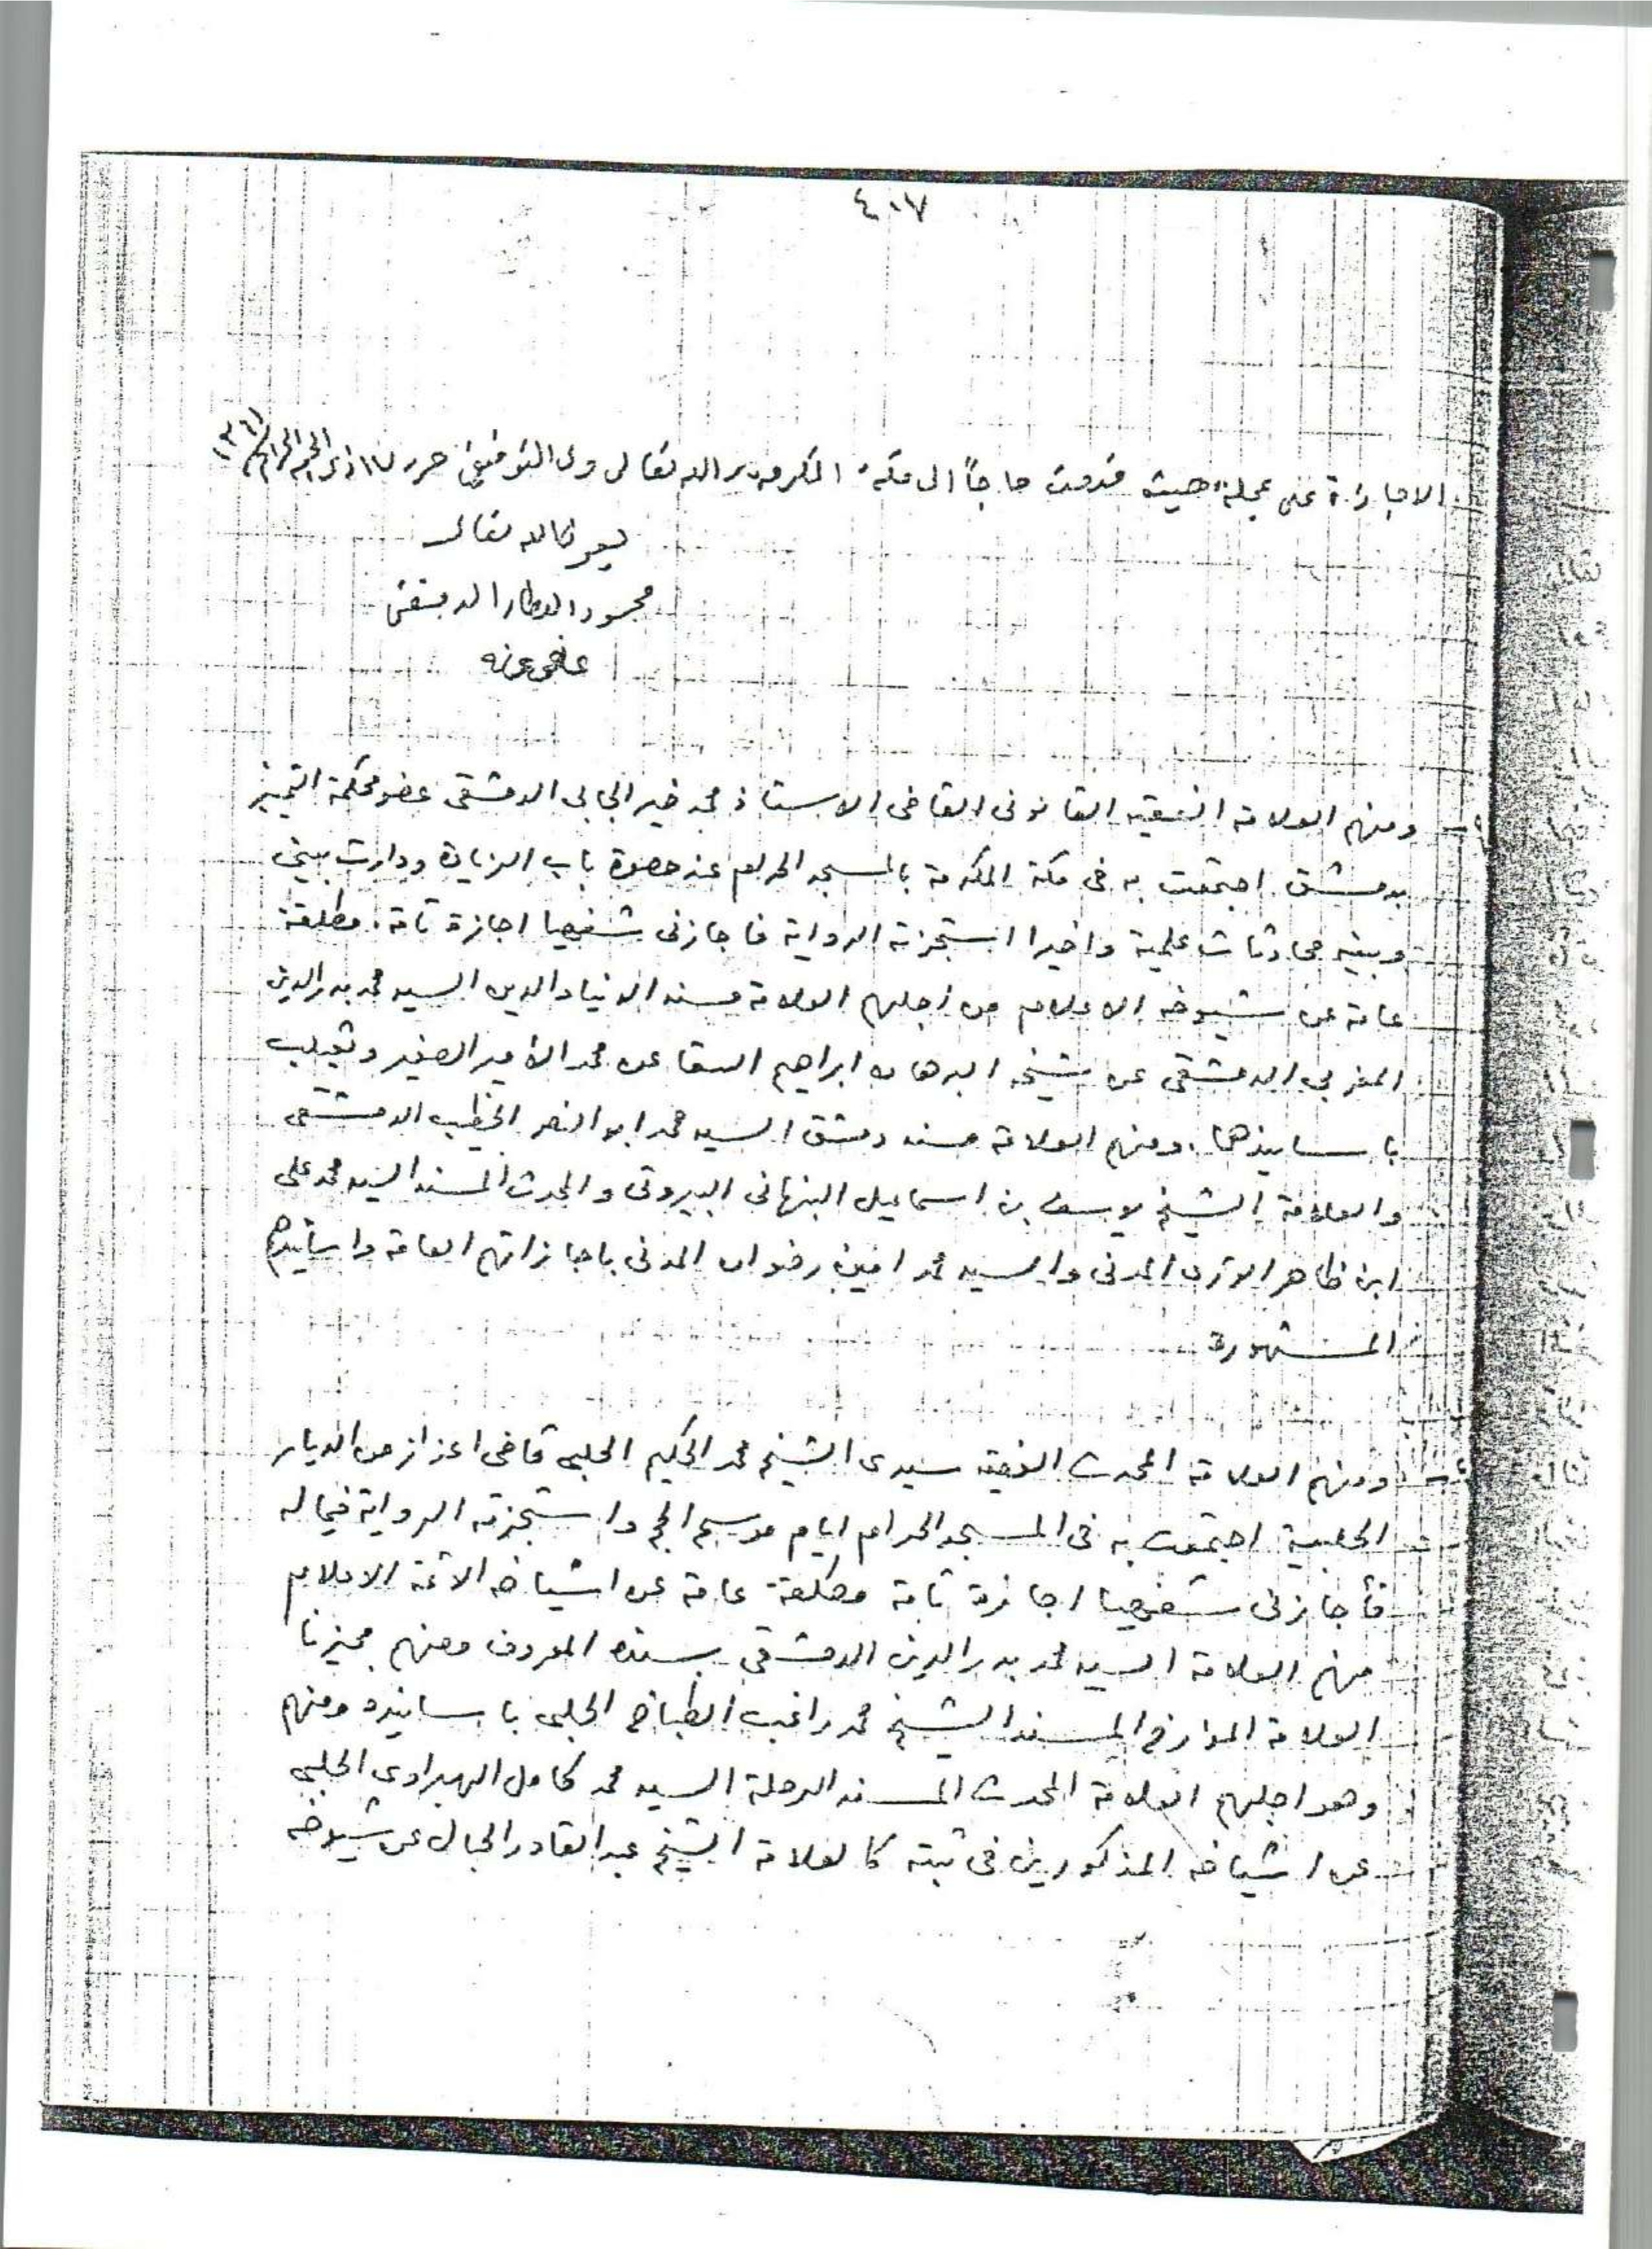 ٤٠٧
الاجازة على عجلة حيث قدمت حاجاً الى مكة المكرمة والله تعالى ولى التوفيق حرر ١٧ ذى الحجة الحرام
بعون الله تعالى
محمود العطار الدمشقى
عفى عنه
ومنهم العلامة الفقيه القانونى القاضى الاستاذ محمد خير الجابى الدمشقى عضو محكمة التمييز
بدمشق اجتمعت به فى مكة المكرمة بالمسجد الحرام عند حصوة باب الزيادة ودارت بينى
وبينه محادثات علمية واخيرا استجزته الرواية فاجازنى شفهيا اجازة تامة مطلقة
عامة عن شيوخه الاعلام من اجلهم العلامة مسند الدنيا والدين السيد محمد بدر الدين
المغربى الدمشقى عن شيخه البرهان ابراهيم السقا عن محمد الأمير الصغير وثعيلب
باسانيدهما، ومنهم العلامة مسند دمشق السيد محمد ابو النصر الخطيب الدمشقى
والعلامة الشيخ يوسف بن اسماعيل النبهانى البيروتى والمحدث المسند السيد محمد على
ابن ظاهر الوترى المدنى والسيد محمد امين رضوان المدنى باجازاتهم العامة واسانيدهم
المشهورة
ومنهم العلامة المحدث الفقيه سيدى الشيخ محمد الحكيم الحلبى قاضى اعزاز من الديار
الحلبية اجتمعت به فى المسجد الحرام ايام موسم الحج واستجزته الرواية فيما له
فأجازنى شفهيا اجازة تامة مطلقة عامة عن اشياخه الائمة الاعلام
منهم العلامة السيد محمد بدر الدين الدمشقى بسنده المعروف ومنهم مجيزنا
العلامة المؤرخ المسند الشيخ محمد راغب الطباخ الحلبى باسانيده ومنهم
وهو اجلهم العلامة المحدث المسند الرحلة السيد محمد كامل الهبراوى الحلبى
عن اشياخه المذكورين فى ثبته كالعلامة الشيخ عبد القادر الحبال عن شيوخه